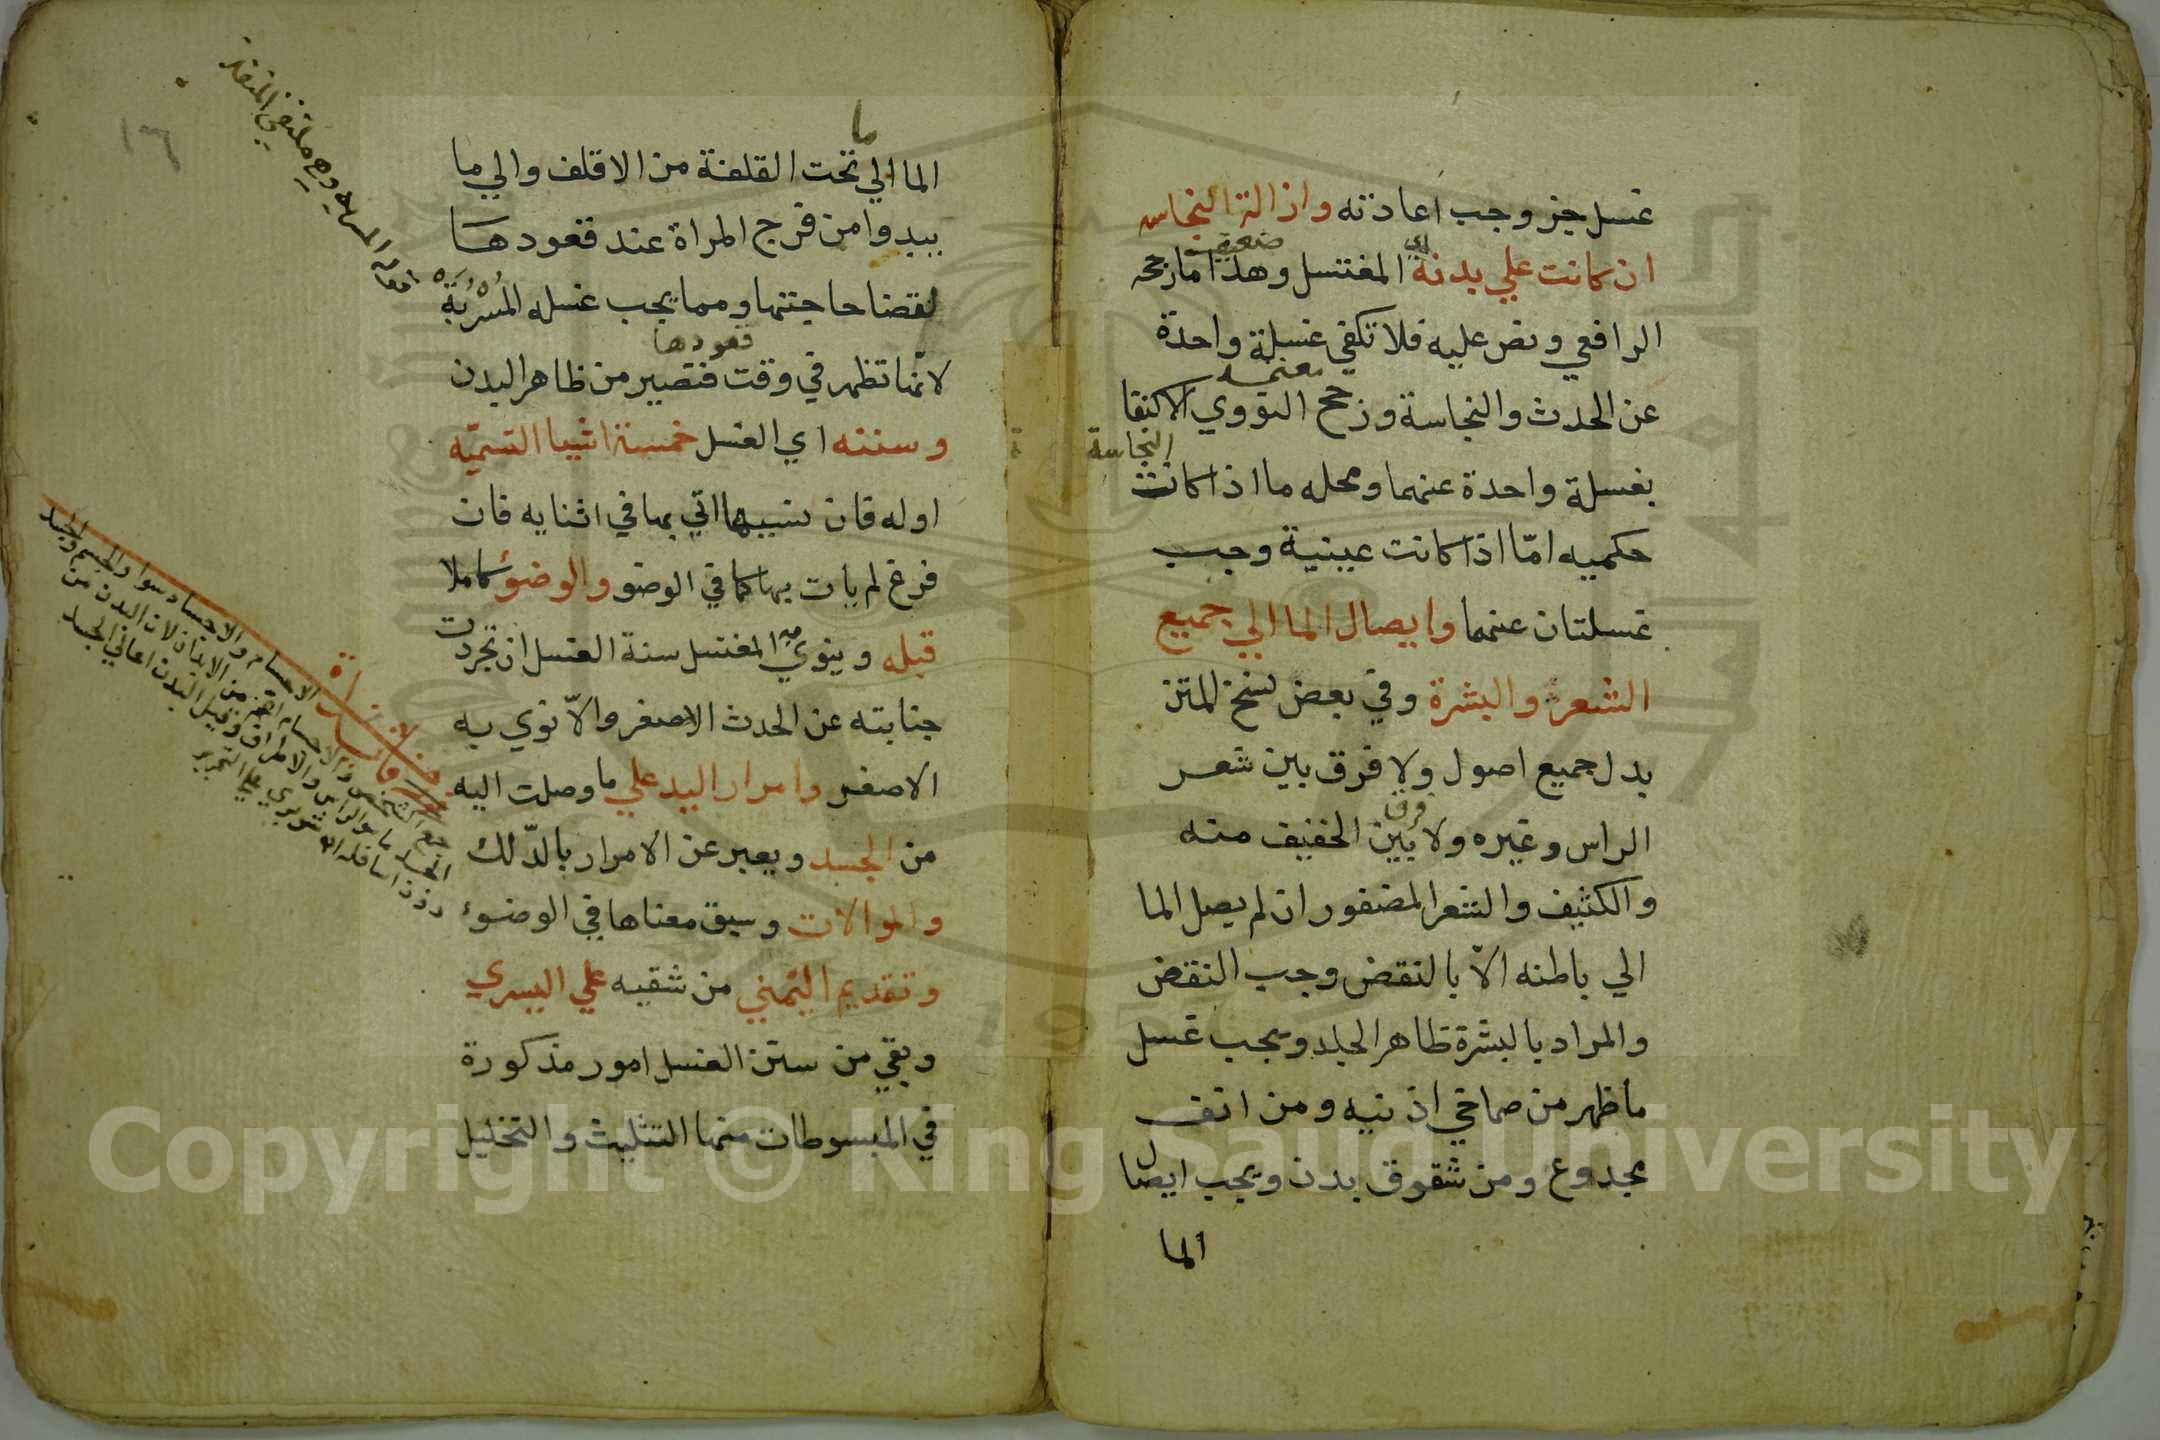 غسل جزء وجب اعادته وازالة النجاسه
ان كانت علي بدنه اي المغتسل وهذا مارجحه
ضعيف
الرافعي ونص عليه فلا تكفي غسلة واحدة
معتمد
عن الحدث والنجاسة ورجح النووي الاكتفا
بغسلة واحدة عنهما ومحله ما اذا كانت
النجاسة
حكميه امّا اذا كانت عينية وجب
غسلتان عنهما وايصال الما الي جميع
الشعر والبشرة وفي بعض نسخ المتن
بدل جميع اصول ولا فرق بين شعر
الراس وغيره ولا بين الخفيف منه
فرق
والكثيف والشعر المضفور ان لم يصل الما
الي باطنه الاّ بالنقض وجب النقض
والمراد بالبشرة ظاهر الجلد ويجب غسل
ما ظهر من صماخي اذنيه ومن انف
مجدوع ومن شقوق بدن ويجب ايصال
الما
الما الي ما تحت القلفة من الاقلف والي ما
يبدوا من فرج المراة عند قعودها
لقضا حاجتها ومما يجب غسله المسربة
قعودها
لانّها تظهر في وقت فتصير من ظاهر البدن
وسننه اي الغسل خمسة اشيا التسميّه
اوله فان نسيها اتي بها في اثنايه فان
فرغ لم يات بها كما في الوضو والوضوء كاملا
قبله وينوي به المغتسل سنة الغسل ان تجردت
جنابته عن الحدث الاصغر والاّ نوي به
الاصغر وامرار اليد علي ما وصلت اليه
من الجسد ويعبر عن الامرار بالدّلك
والموالات وسبق معناها في الوضوء
وتقديم اليُمني من شقيه علي اليسري
وبقي من سنن الغسل امور مذكورة
في المبسوطات منها التثليث والتخليل
١٦
وهي ملتقي المنفذ
Copyright © King Saud University
1957